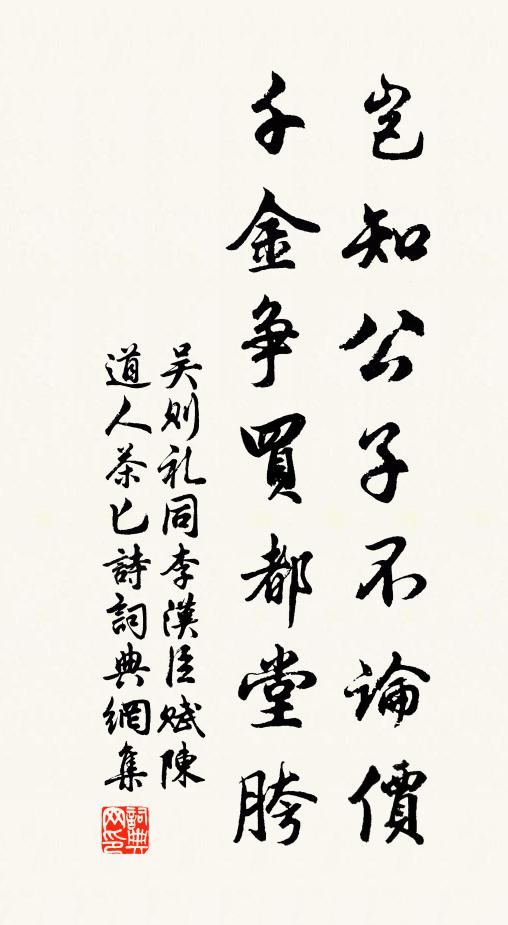 豈知公子不論價
千金争買都堂胯
吴则礼同李漢臣赋陳
道人茶匕詩詞典網集
詞典网印